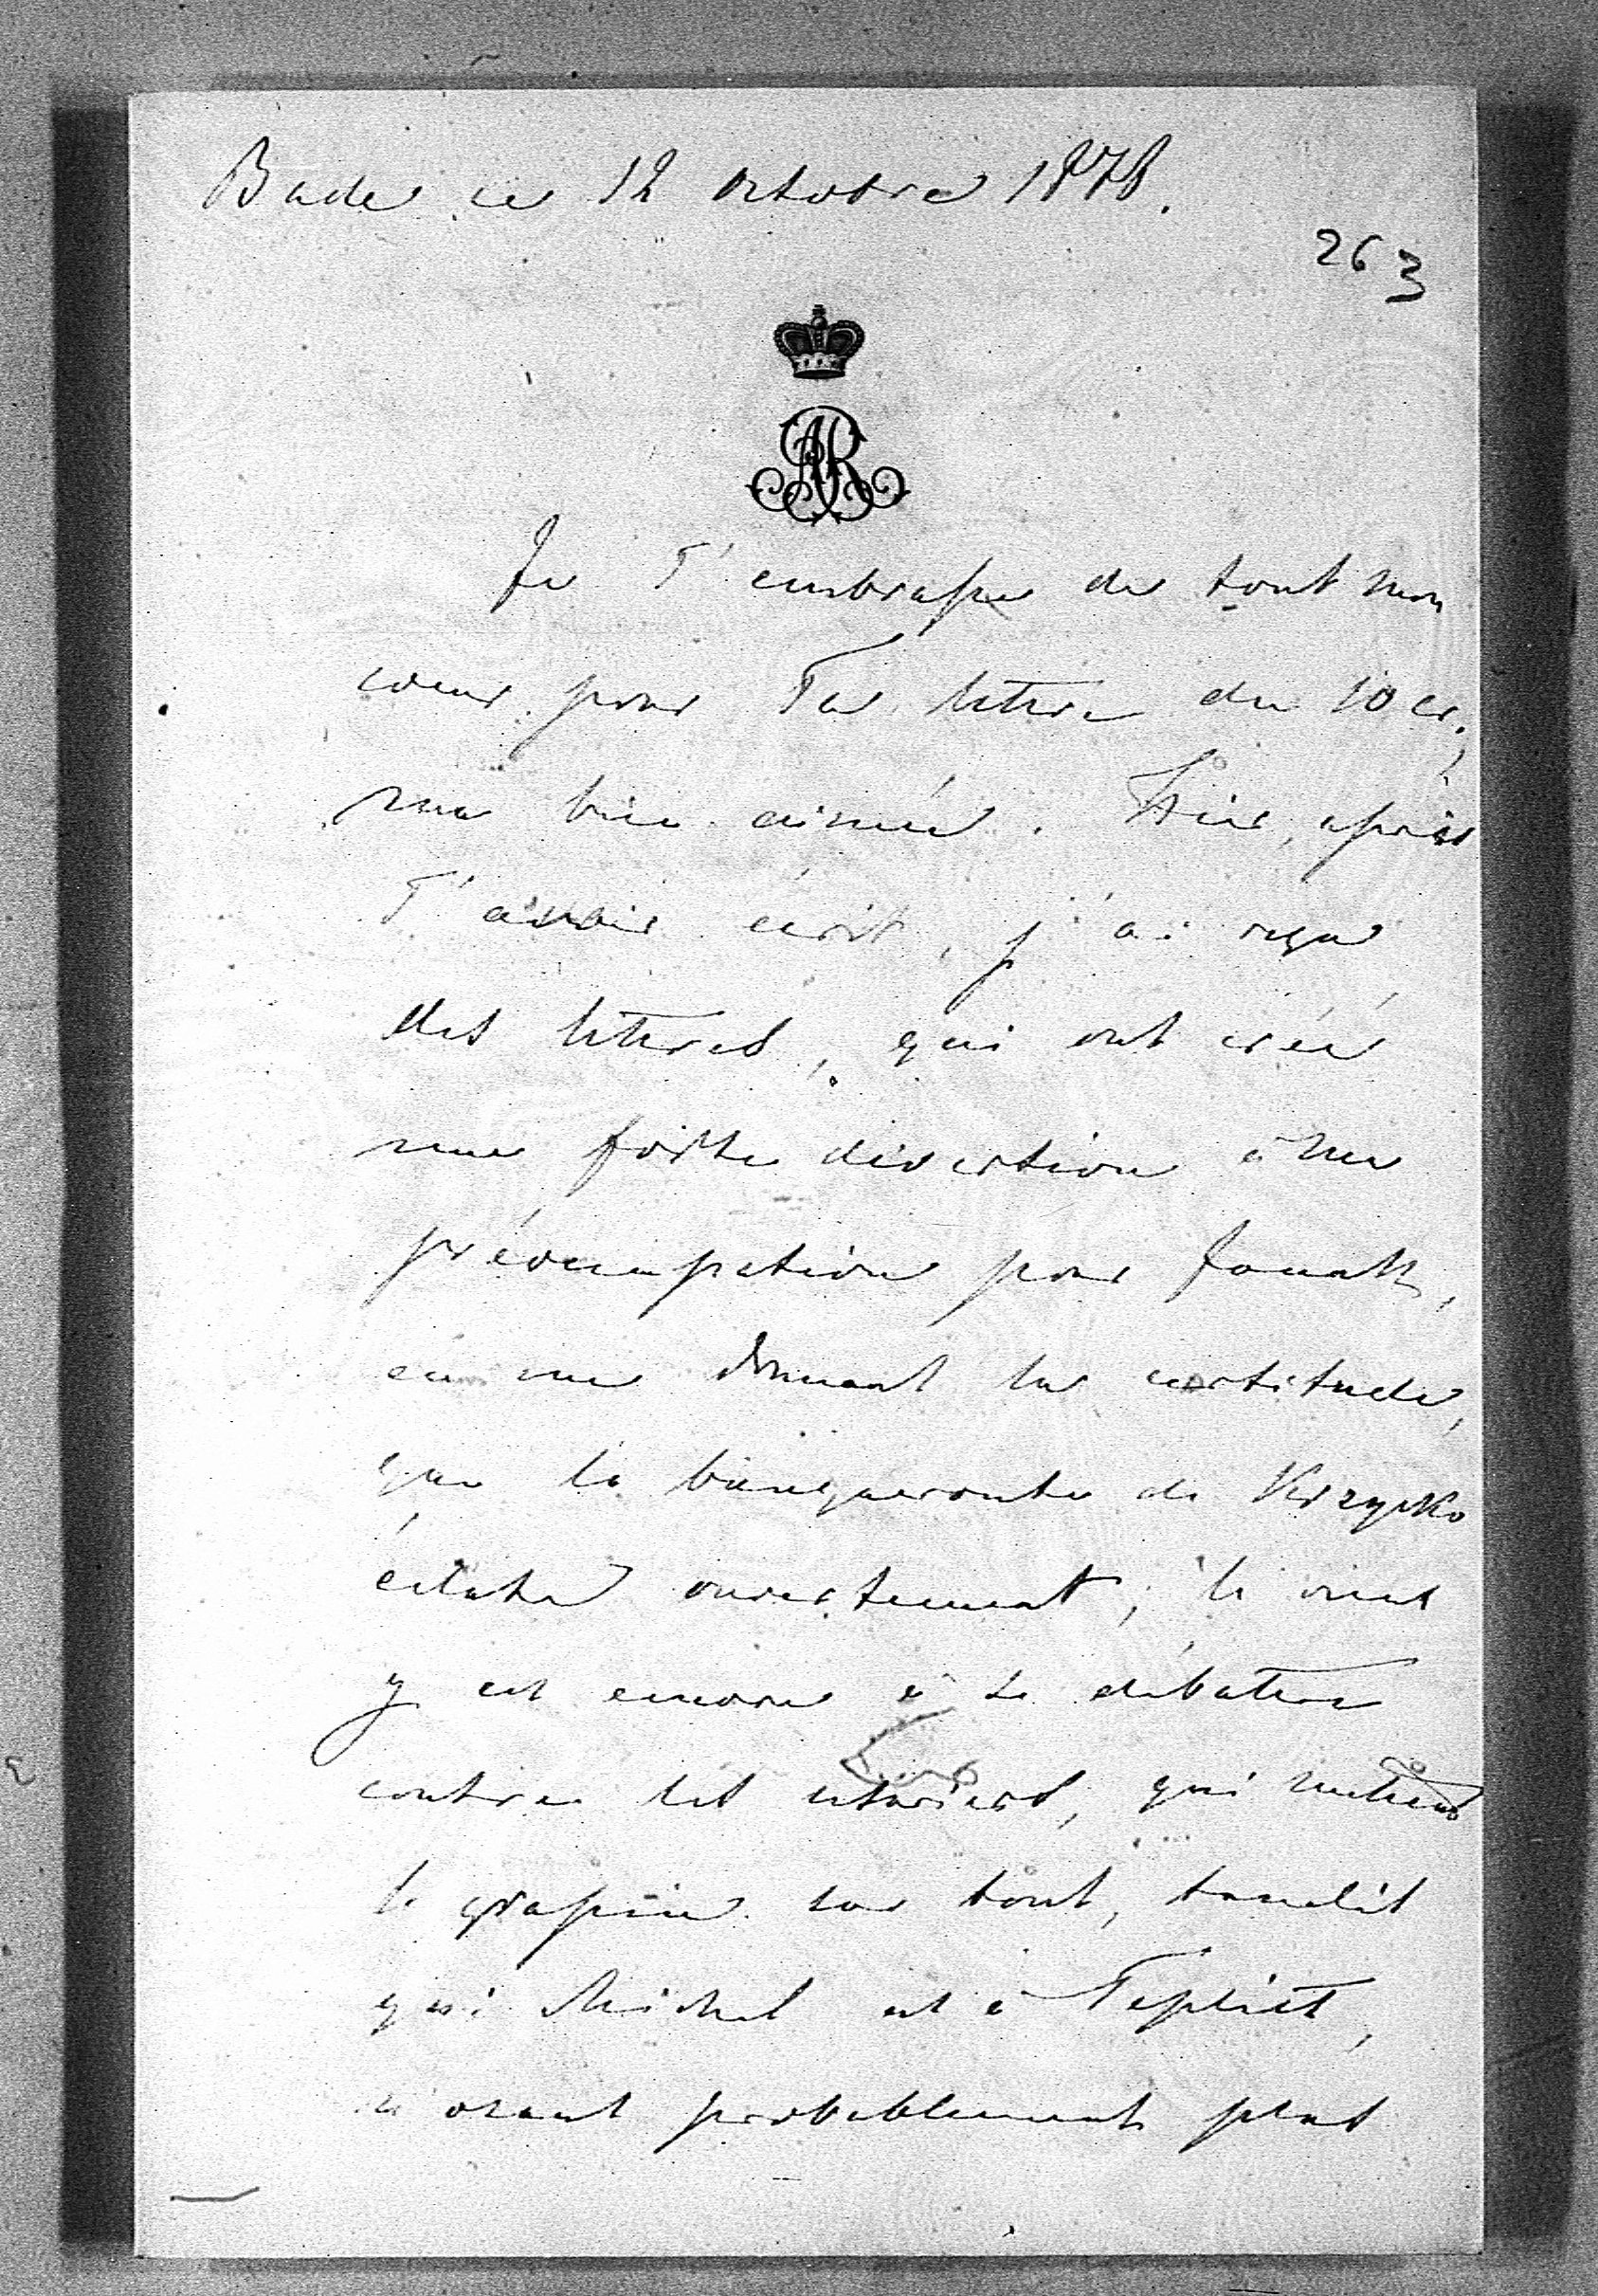 Bade ce 12 Octobre 1878.
263
AR
Je T'embrasse de tout mon
coeur pour Ta lettre du 10 cr.,
ma bien aimée. Hier, après
T'avoir écrit, j'ai reçu
des lettres, qui ont créé
une forte diversion à ma
préoccupation pour
en me donnant la certitude,
que la banqueroute de Krzyzko
éclate ouvertement; le vieux
y est encore à se débattre
contre les usuriers, qui mettent
le grapin sur tout, tandis
que Michel est à Teplitz,
n'osant probablement plus